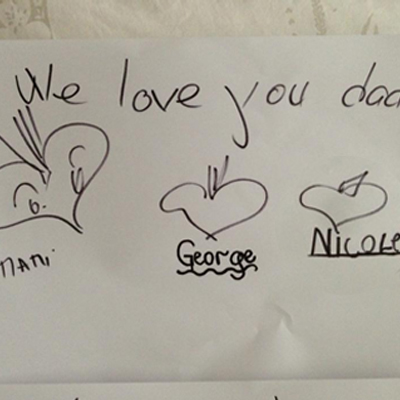 We love you dad
George
Nicole